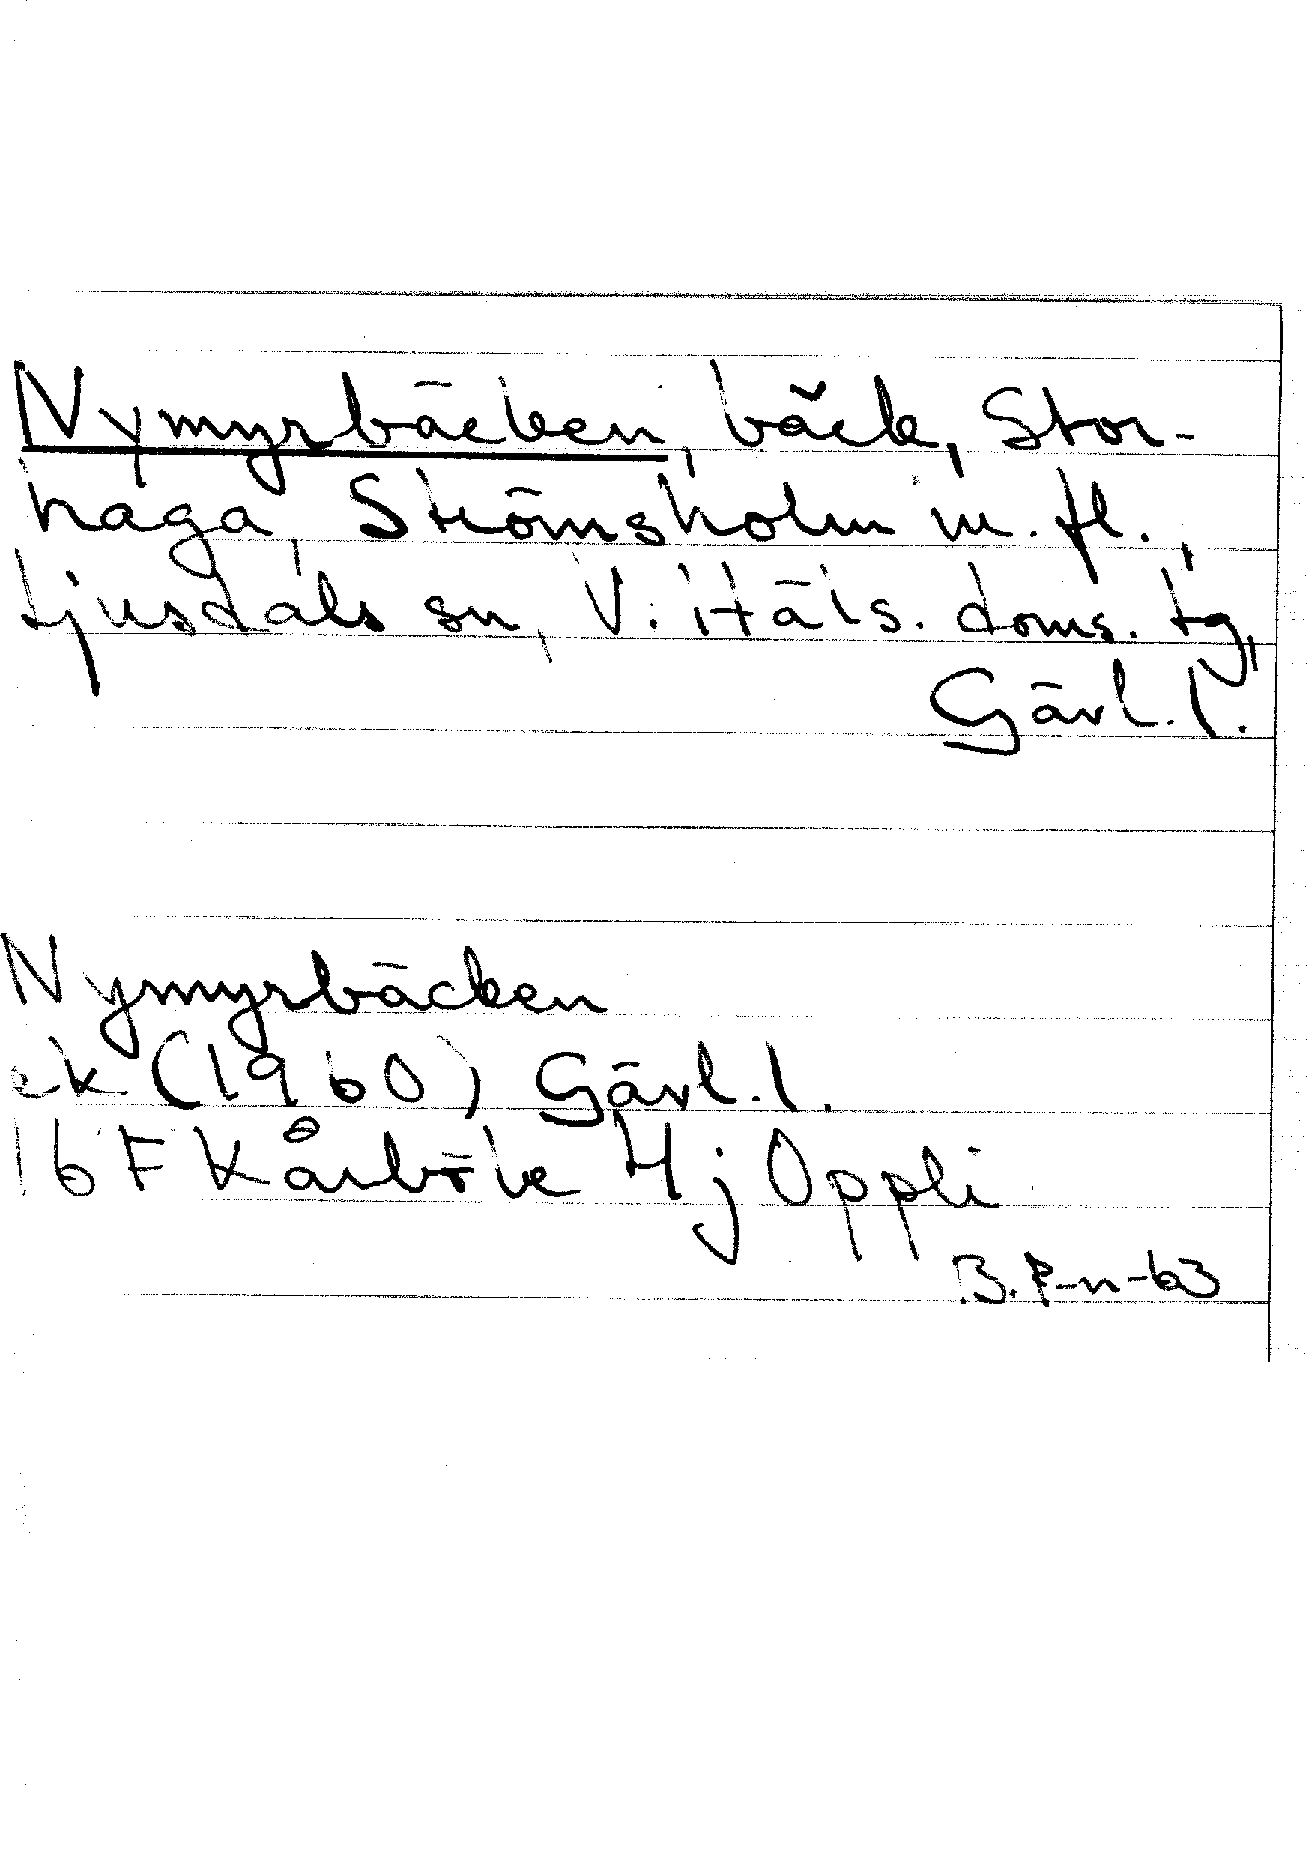 Nymyrbäcken, bäck, Stor-
haga, Strömsholm m. fl.,
Ljusdals sn, V. Häls. doms. tg,
Gävl. l.
Nymyrbäcken
ek (1960) Gävl. l.
16 F Kårböle 4 j Oppli
B. P-n -63